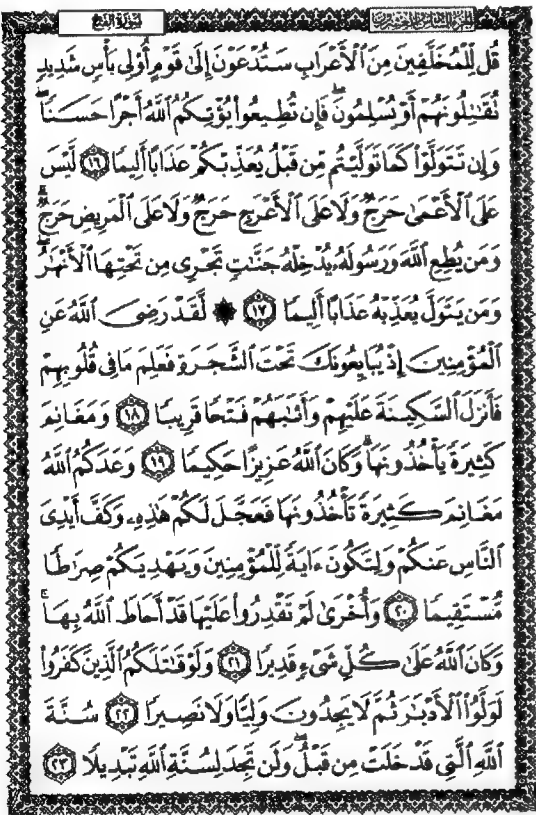 سورة الفتح
الجزء السادس والعشرون
قُل لِّلْمُخَلَّفِينَ مِنَ ٱلْأَعْرَابِ سَتُدْعَوْنَ إِلَىٰ قَوْمٍ أُو۟لِى بَأْسٍ شَدِيدٍ
تُقَـٰتِلُونَهُمْ أَوْ يُسْلِمُونَ ۖ فَإِن تُطِيعُوا۟ يُؤْتِكُمُ ٱللَّهُ أَجْرًا حَسَنًا ۖ
وَإِن تَتَوَلَّوْا۟ كَمَا تَوَلَّيْتُم مِّن قَبْلُ يُعَذِّبْكُمْ عَذَابًا أَلِيمًا ١٦ لَّيْسَ
عَلَى ٱلْأَعْمَىٰ حَرَجٌ وَلَا عَلَى ٱلْأَعْرَجِ حَرَجٌ وَلَا عَلَى ٱلْمَرِيضِ حَرَجٌ ۗ
وَمَن يُطِعِ ٱللَّهَ وَرَسُولَهُۥ يُدْخِلْهُ جَنَّـٰتٍ تَجْرِى مِن تَحْتِهَا ٱلْأَنْهَـٰرُ ۖ
وَمَن يَتَوَلَّ يُعَذِّبْهُ عَذَابًا أَلِيمًا ١٧ ۞ لَّقَدْ رَضِىَ ٱللَّهُ عَنِ
ٱلْمُؤْمِنِينَ إِذْ يُبَايِعُونَكَ تَحْتَ ٱلشَّجَرَةِ فَعَلِمَ مَا فِى قُلُوبِهِمْ
فَأَنزَلَ ٱلسَّكِينَةَ عَلَيْهِمْ وَأَثَـٰبَهُمْ فَتْحًا قَرِيبًا ١٨ وَمَغَانِمَ
كَثِيرَةً يَأْخُذُونَهَا ۗ وَكَانَ ٱللَّهُ عَزِيزًا حَكِيمًا ١٩ وَعَدَكُمُ ٱللَّهُ
مَغَانِمَ كَثِيرَةً تَأْخُذُونَهَا فَعَجَّلَ لَكُمْ هَـٰذِهِۦ وَكَفَّ أَيْدِىَ
ٱلنَّاسِ عَنكُمْ وَلِتَكُونَ ءَايَةً لِّلْمُؤْمِنِينَ وَيَهْدِيَكُمْ صِرَٰطًا
مُّسْتَقِيمًا ٢٠ وَأُخْرَىٰ لَمْ تَقْدِرُوا۟ عَلَيْهَا قَدْ أَحَاطَ ٱللَّهُ بِهَا ۚ
وَكَانَ ٱللَّهُ عَلَىٰ كُلِّ شَىْءٍ قَدِيرًا ٢١ وَلَوْ قَـٰتَلَكُمُ ٱلَّذِينَ كَفَرُوا۟
لَوَلَّوُا۟ ٱلْأَدْبَـٰرَ ثُمَّ لَا يَجِدُونَ وَلِيًّا وَلَا نَصِيرًا ٢٢ سُنَّةَ
ٱللَّهِ ٱلَّتِى قَدْ خَلَتْ مِن قَبْلُ ۖ وَلَن تَجِدَ لِسُنَّةِ ٱللَّهِ تَبْدِيلًا ٢٣